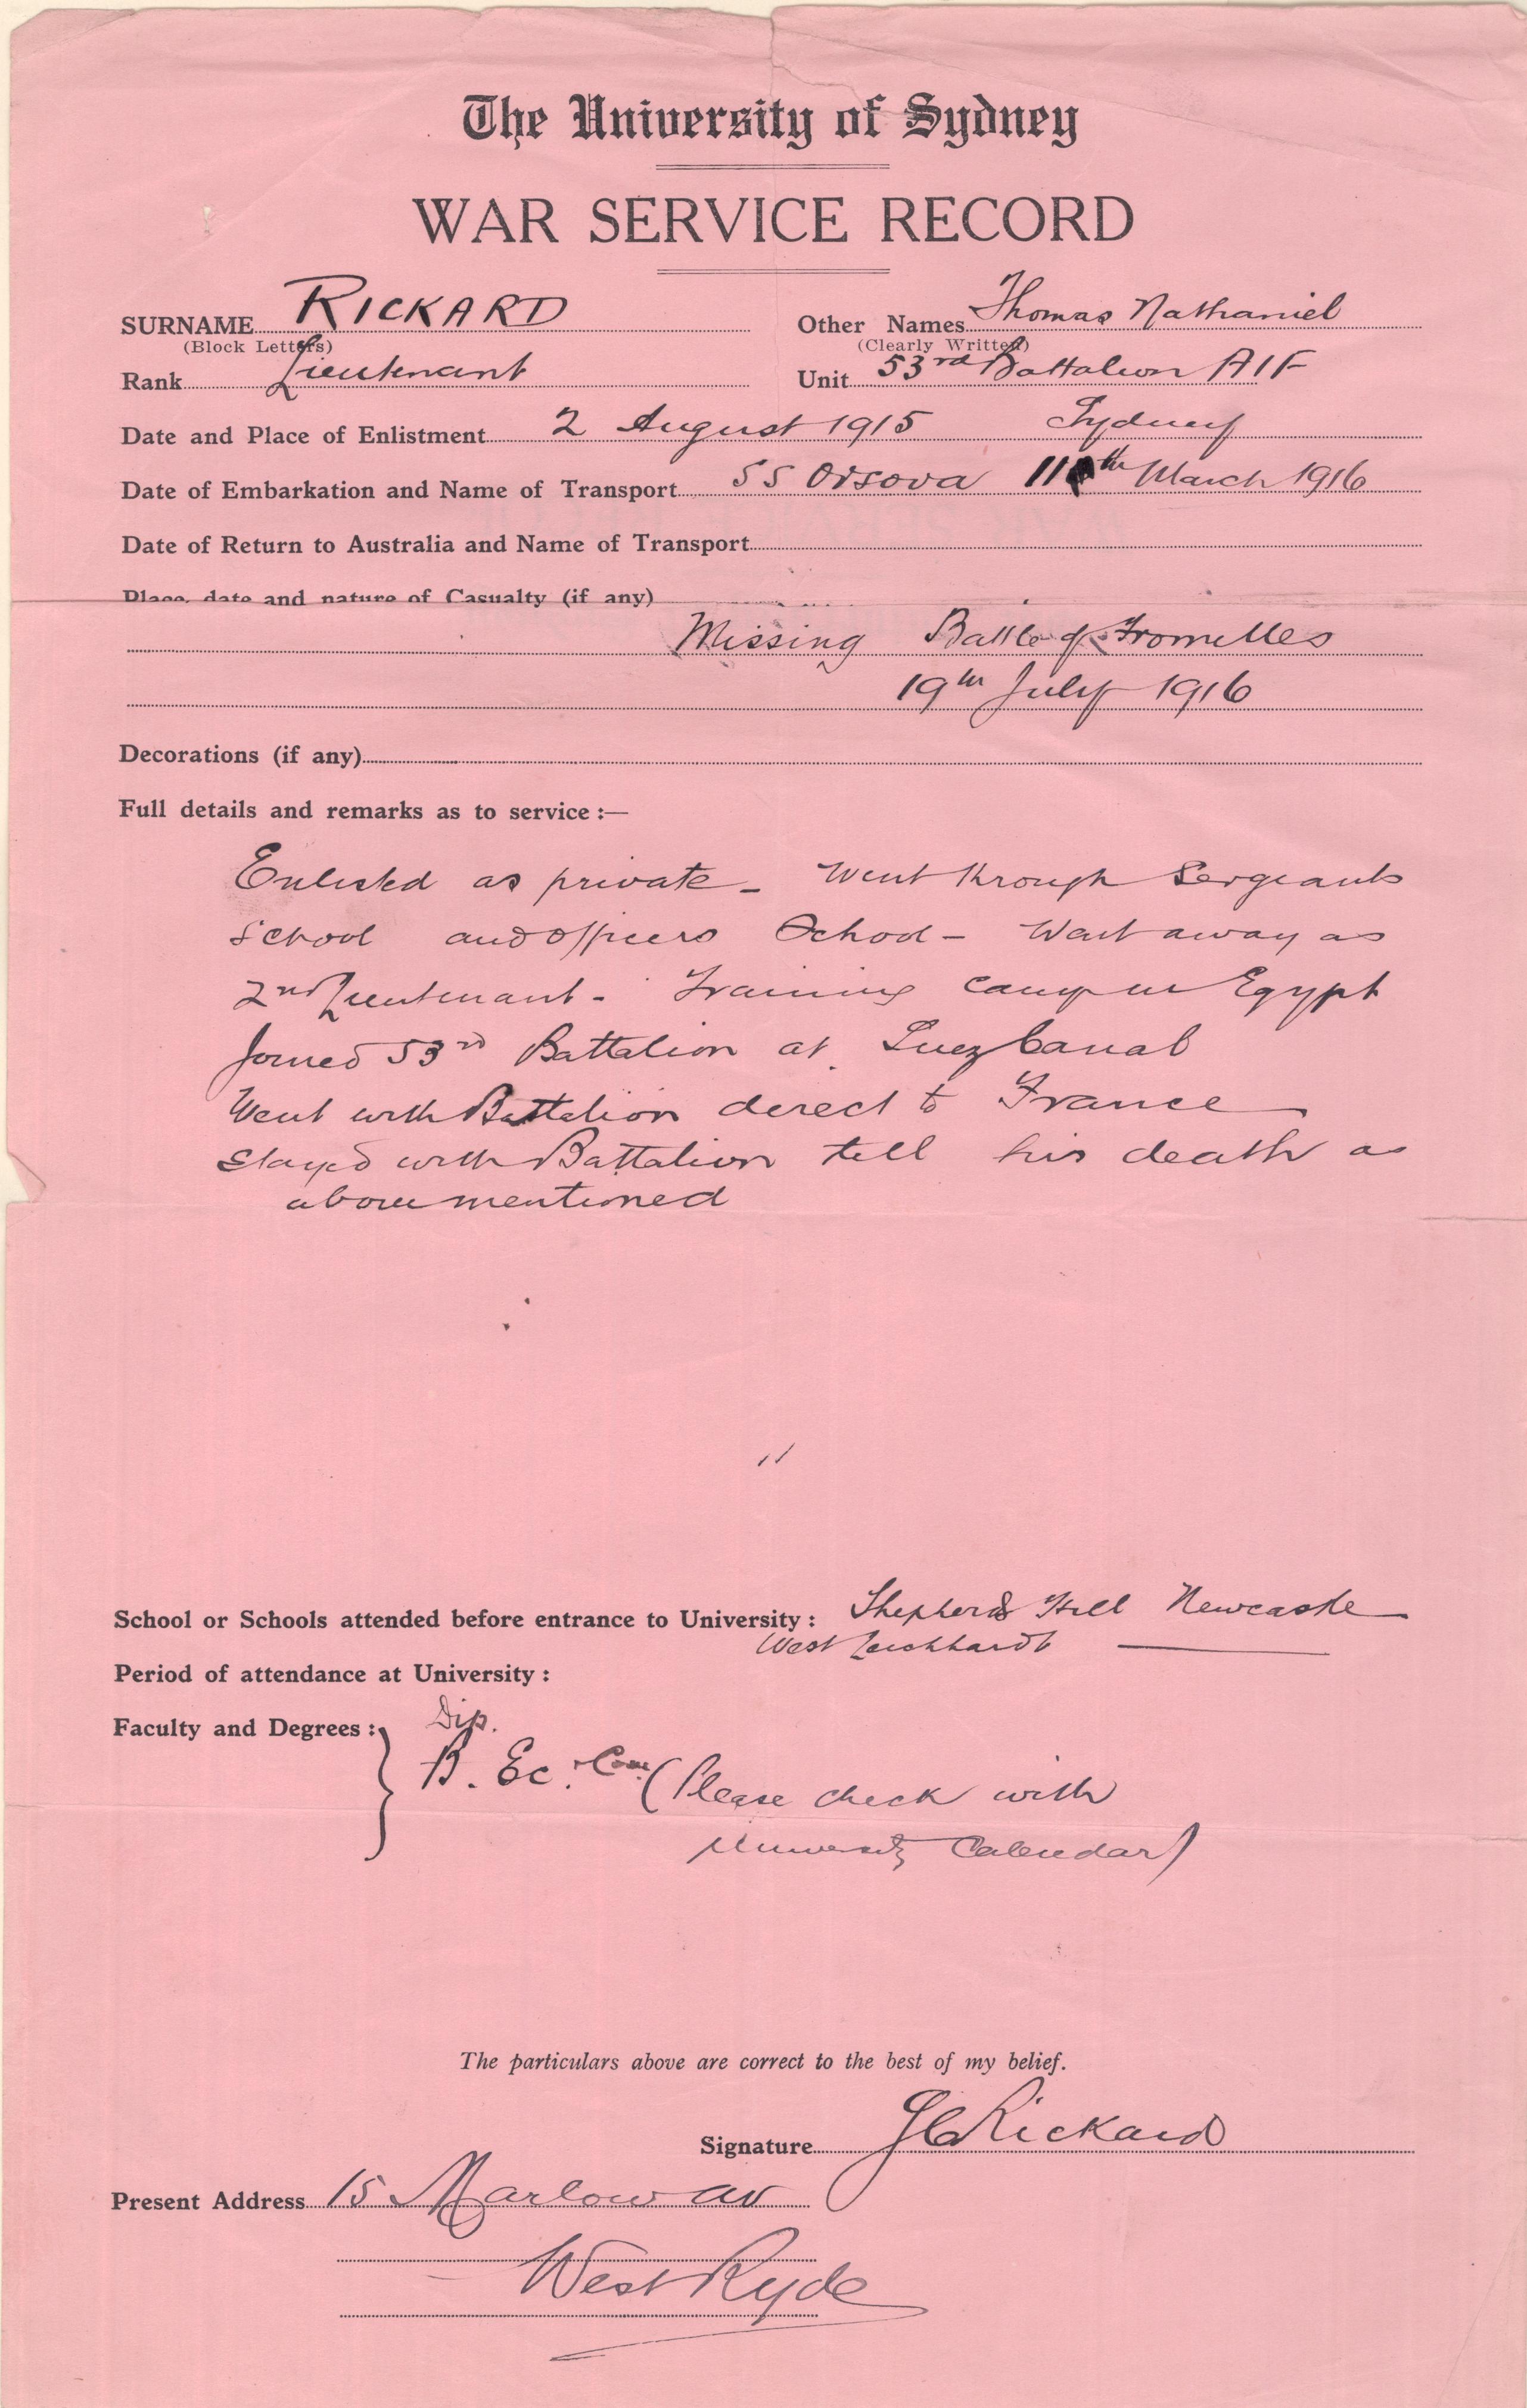 The University of Sydney
WAR SERVICE RECORD
SURNAME RICKARD Other Names Thomas Nathaniel
(Block Letters) (Clearly Written)
Rank Lieutenant Unit 53rd Battalion AIF
Date and Place of Enlistment 2 August 1915 Sydney
Date of Embarkation and Name of Transport SS Orsova 11th March 1916
Date of Return to Australia and Name of Transport
Place, date and nature of Casualty (if any)
Missing Battle of Fromelles
19th July 1916
Decorations (if any)
Full details and remarks as to service :—
Enlisted as private - Went through Sergeants
School and officers School - Went away as
2nd Lieutenant - Training camp in Egypt
Joined 53rd Battalion at Suez Canal
Went with Battalion direct to France
Stayed with Battalion till his death as
above mentioned
School or Schools attended before entrance to University : Shepherds Hill Newcastle
West Leichhardt
Period of attendance at University :
Faculty and Degrees : Dip.
B. Ec. & Com (Please check with
University Calendar)
The particulars above are correct to the best of my belief.
Signature Rickard
Present Address 15 Marlow av
West Ryde